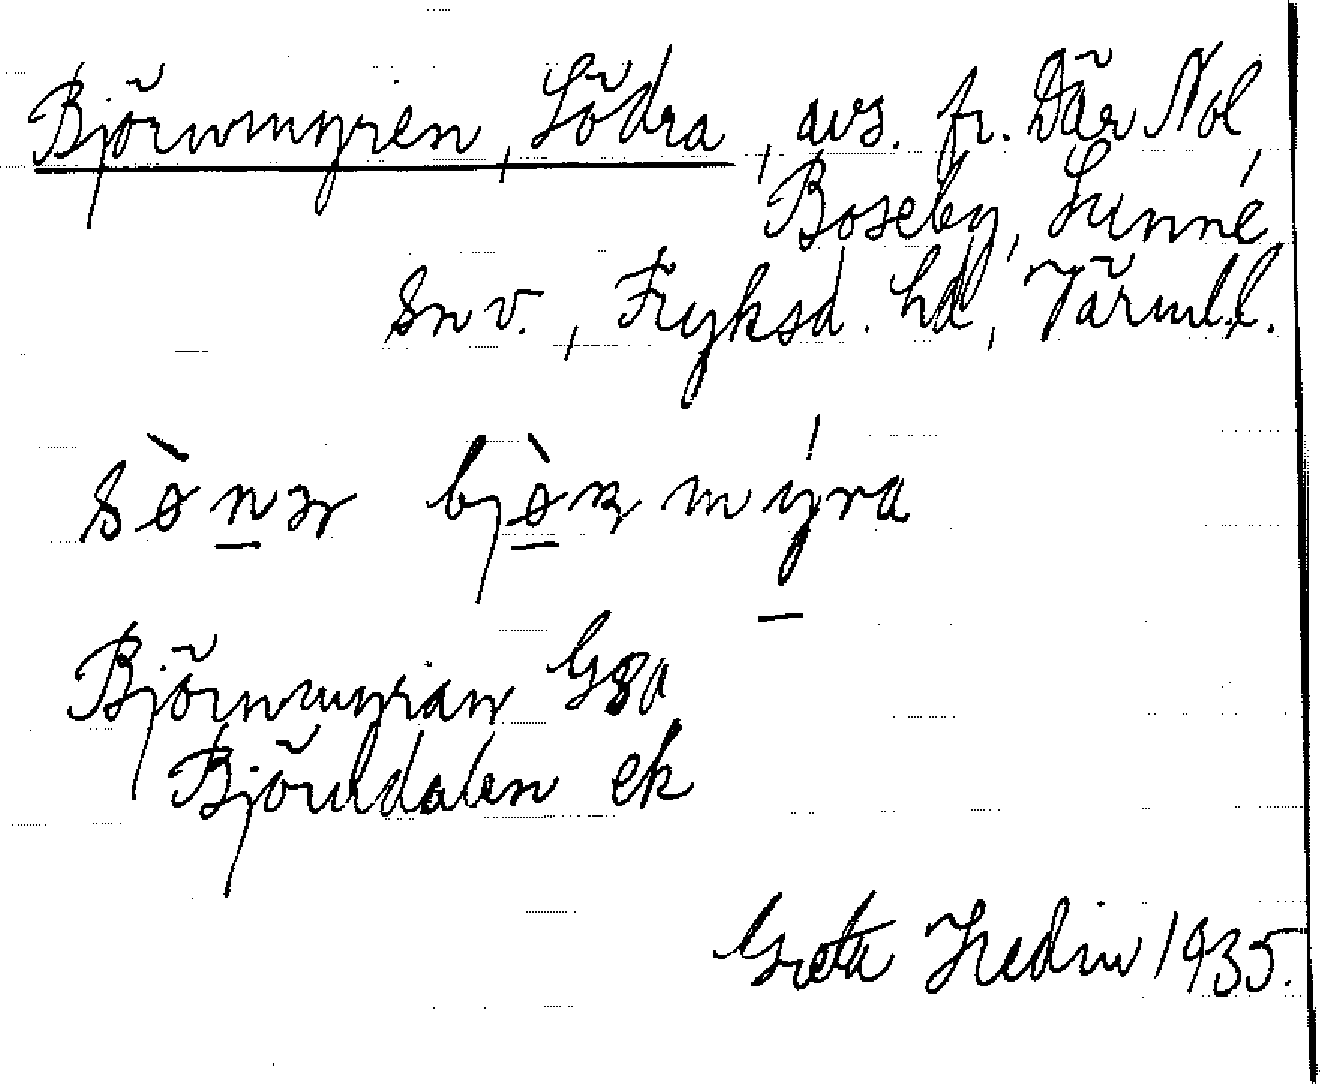 Björnmyren, Södra, avs. fr. Där Nol,
Boseby, Sunne
sn v., Fryksd. hd, Värml. l.
sø̀nər bjø̀ɳmýra
Björnmyran GSa
Björndalen ek
Greta Hedin 1935.